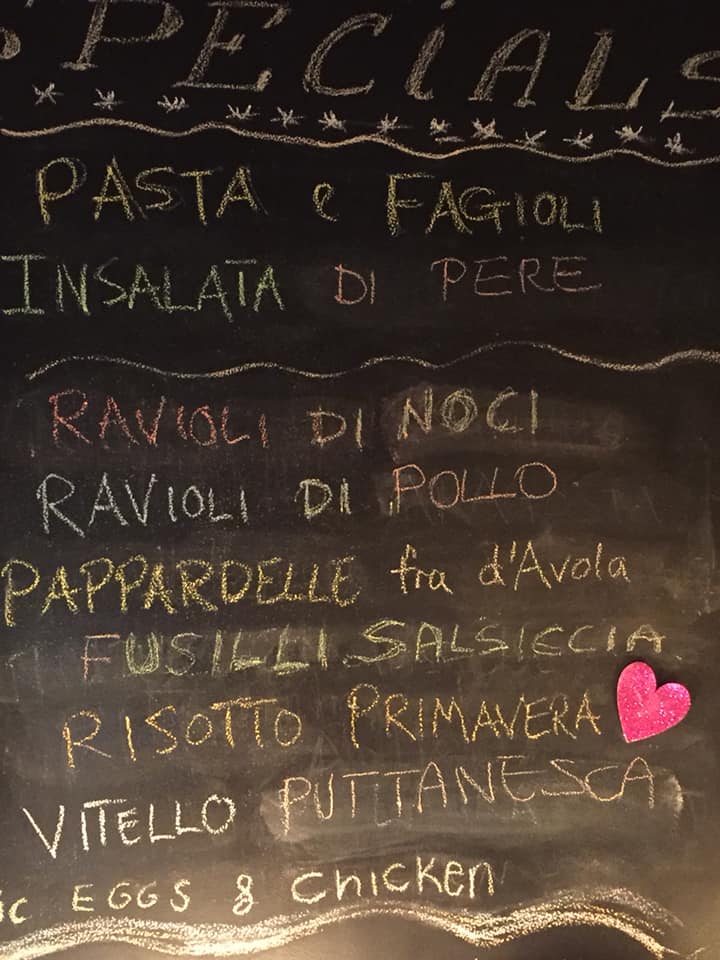 SPECIALS
PASTA e FAGIOLI
INSALATA DI PERE
RAVIOLI DI NOCI
RAVIOLI DI POLLO
PAPPARDELLE fra d'Avola
FUSILLI SALSICCIA
RISOTTO PRIMAVERA
VITELLO PUTTANESCA
ic EGGS & Chicken